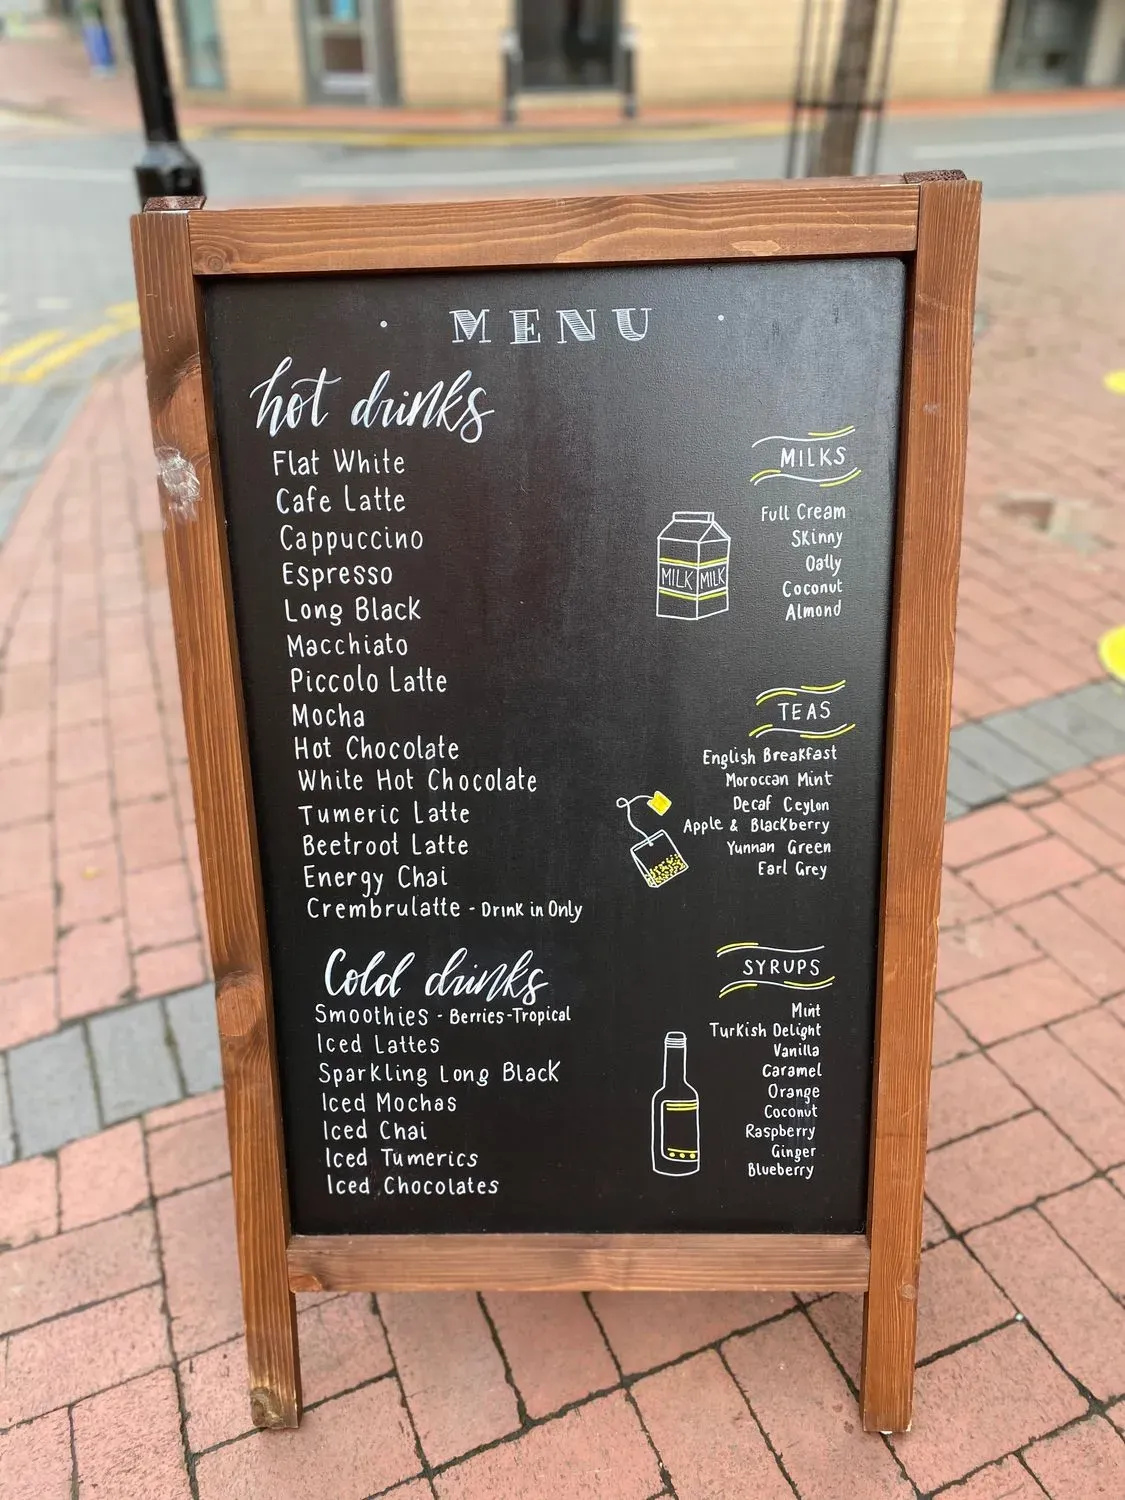 MENU
hot drinks
Flat White
Cafe Latte
Cappuccino
Espresso
Long Black
Macchiato
Piccolo Latte
Mocha
Hot Chocolate
White Hot Chocolate
Tumeric Latte
Beetroot Latte
Energy Chai
Crembrulatte - Drink in Only
Cold drinks
Smoothies - Berries-Tropical
Iced Lattes
Sparkling Long Black
Iced Mochas
Iced Chai
Iced Tumerics
Iced Chocolates
MILKS
Full Cream
Skinny
Oatly
Coconut
Almond
MILK MILK
TEAS
English Breakfast
Moroccan Mint
Decaf Ceylon
Apple & Blackberry
Yunnan Green
Earl Grey
SYRUPS
Mint
Turkish Delight
Vanilla
Caramel
Orange
Coconut
Raspberry
Ginger
Blueberry